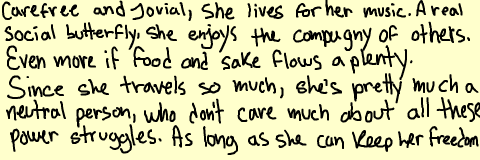 Carefree and Jovial, she lives for her music. A real
social butterfly, she enjoys the compagny of others.
Even more if food and sake flows a plenty.
Since she travels so much, she's pretty much a
neutral person, who don't care much about all these
power struggles. As long as she can keep her freedom